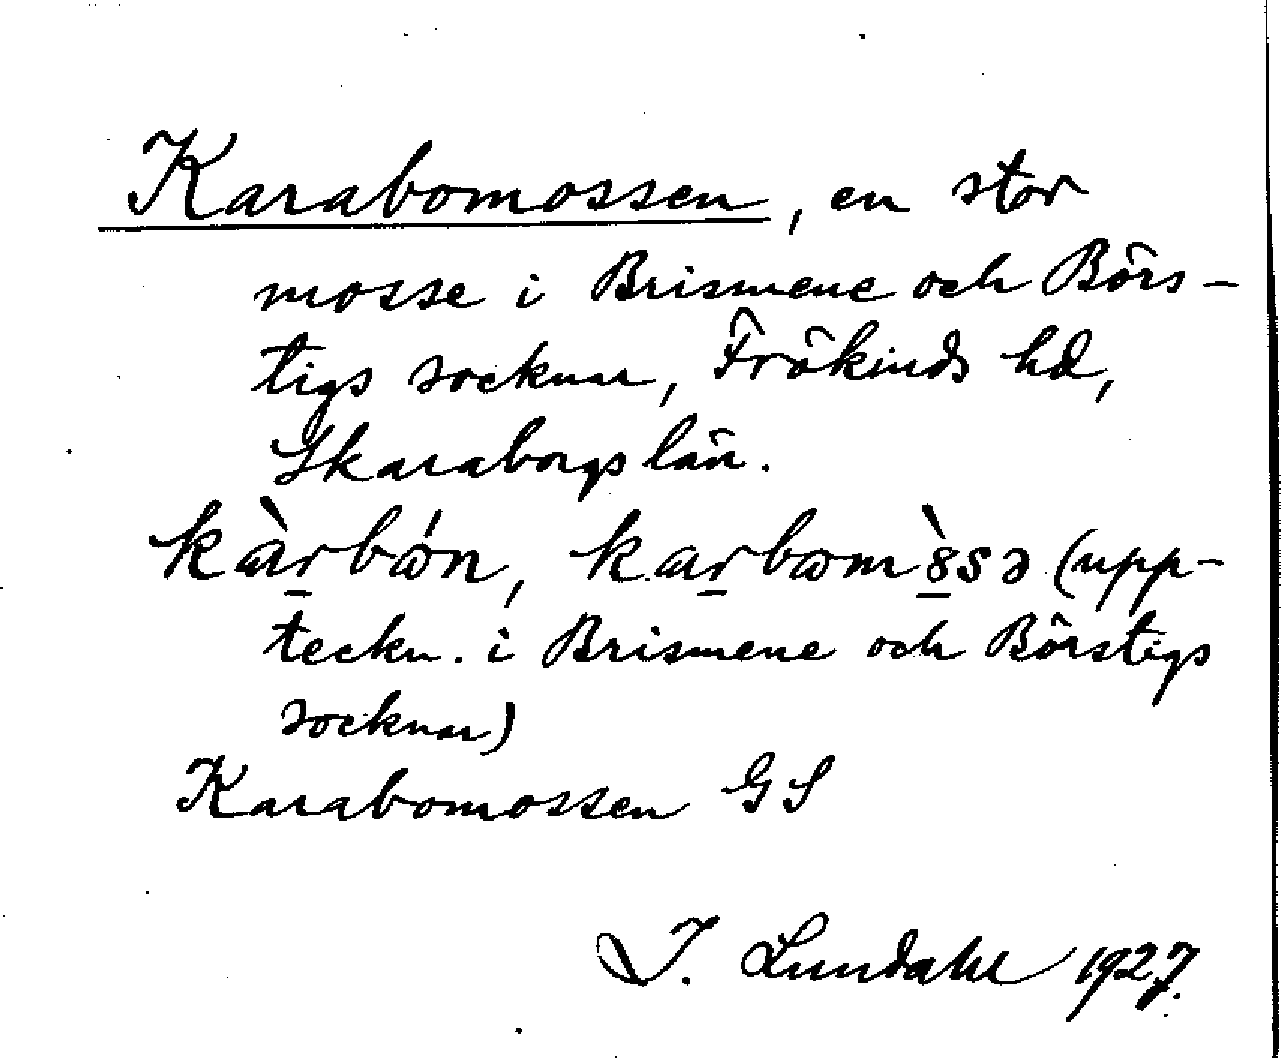 Karabomossen, en stor
mosse i Brismene och Börs-
tigs socknar, Frökinds hd,
Skaraborgs län.
kàr̲bǿn, kar̲bømò̲sə (upp-
teckn. i Brismene och Börstigs
socknar)
Karabomossen GS
I. Lundahl 1927.